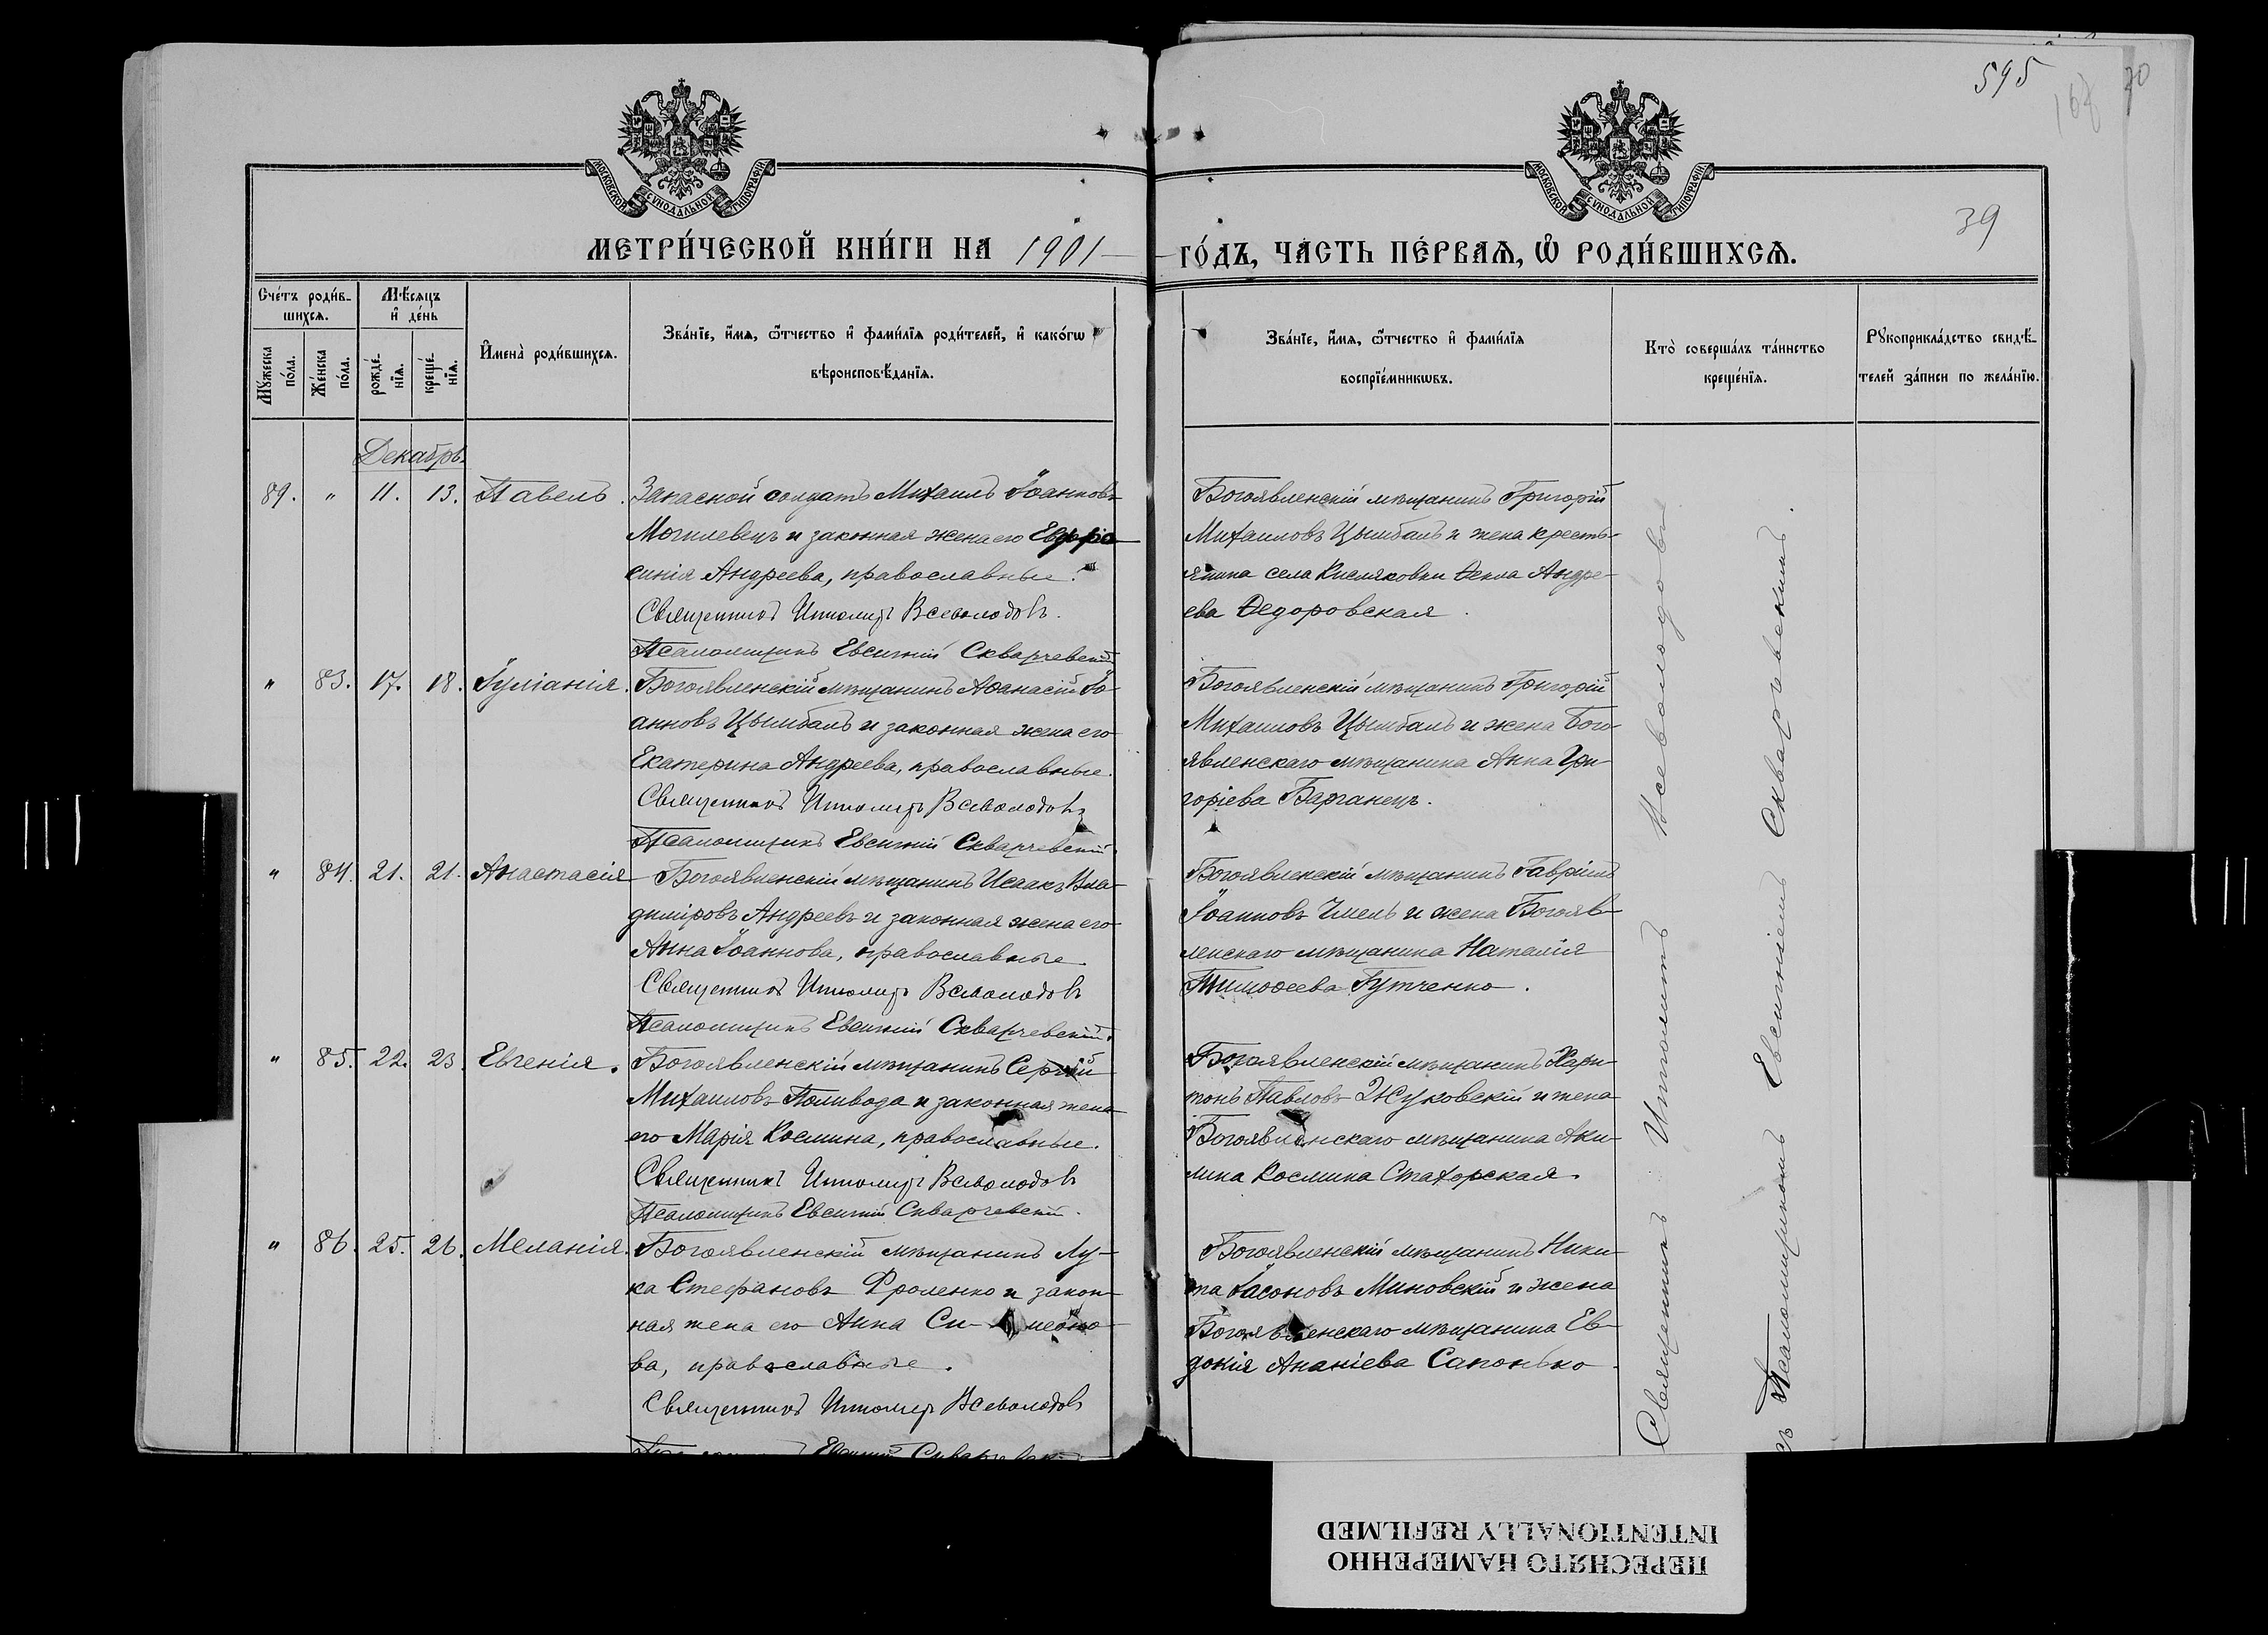 595
168
70
МОСКОВСКОЙ СѴНОДАЛЬНОЙ ТИПОГРАФІИ
МОСКОВСКОЙ СѴНОДАЛЬНОЙ ТИПОГРАФІИ
39
МЕТРИ́ЧЕСКОЙ КНИ́ГИ НА 1901
ГО́ДЪ, ЧАСТЬ ПЕ́РВАѦ, Ѡ҆ РОДИ́ВШИХСѦ.
Сче́тъ роди́в-
шихсѧ.
Мѣ́сѧцъ
и҆ де́нь
Мꙋжеска по́ла.
Же́нска по́ла.
рожде́-
нїѧ.
креще́-
нїѧ.
И҆мена̀ роди́вшихсѧ.
Зва́нїе, и҆́мѧ, ѻ҆́тчество и҆ фами́лїѧ роди́телей, и҆ како́гѡ
вѣроисповѣ́данїѧ.
Зва́нїе, и҆́мѧ, ѻ҆́тчество и҆ фами́лїѧ
воспрїе́мникѡвъ.
Кто̀ соверша́лъ та́инство
креще́нїѧ.
Рꙋкоприкла́дство свидѣ́-
телей за́писи по жела́нїю.
Декабрь
89. " 11. 13. Павелъ.
Запасной солдатъ Михаилъ Іоанновъ
Могилевецъ и законная жена его Евфро-
синія Андреева, православные.
Священникъ Ипполитъ Всеволодовъ.
Псаломщикъ Евсигній Скварчевскій
Богоявленскій мѣщанинъ Григорій
Михаиловъ Цымбалъ и жена кресть-
янина села Кисляковки Ѳекла Андре-
ева Ѳедоровская.
" 83. 17. 18. Іуліанія.
Богоявленскій мѣщанинъ Аѳанасій Іо-
анновъ Цымбалъ и законная жена его
Екатерина Андреева, православные.
Священникъ Ипполитъ Всеволодовъ
Псаломщикъ Евсигній Скварчевскій.
Богоявленскій мѣщанинъ Григорій
Михаиловъ Цымбалъ и жена Бого-
явленскаго мѣщанина Анна Гри-
горіева Барганецъ.
" 84. 21. 21. Анастасія
Богоявленскій мѣщанинъ Исаакъ Вла-
диміровъ Андреевъ и законная жена его
Анна Іоаннова, православные.
Священникъ Ипполитъ Всеволодовъ
Псаломщикъ Евсигній Скварчевскій.
Богоявленскій мѣщанинъ Гавріилъ
Іоанновъ Чмель и жена Богояв-
ленскаго мѣщанина Наталія
Тимоѳеева Гутченко.
" 85. 22. 23. Евгенія.
Богоявленскій мѣщанинъ Сергій
Михаиловъ Поливода и законная жена
его Марія Космина, православные.
Священникъ Ипполитъ Всеволодовъ
Псаломщикъ Евсигній Скварчевскій.
Богоявленскій мѣщанинъ Хари-
тонъ Павловъ Жуковскій и жена
Богоявленскаго мѣщанина Аки-
лина Космина Стахорская.
" 86. 25. 26. Меланія.
Богоявленскій мѣщанинъ Лу-
ка Стефановъ Фроленко и закон-
ная жена его Анна Си- меоно-
ва, православные.
Священникъ Ипполитъ Всеволодовъ
Псаломщикъ Евсигній Скварчевскій
Богоявленскій мѣщанинъ Ники-
та Іасоновъ Миновскій и жена
Богоявленскаго мѣщанина Ев-
докія Ананіева Сапонько.
Священникъ Ипполитъ Всеволодовъ
съ Псаломщикомъ Евсигніемъ Скварчевскимъ.
ПЕРЕСНЯТО НАМЕРЕННО
INTENTIONALLY REFILMED